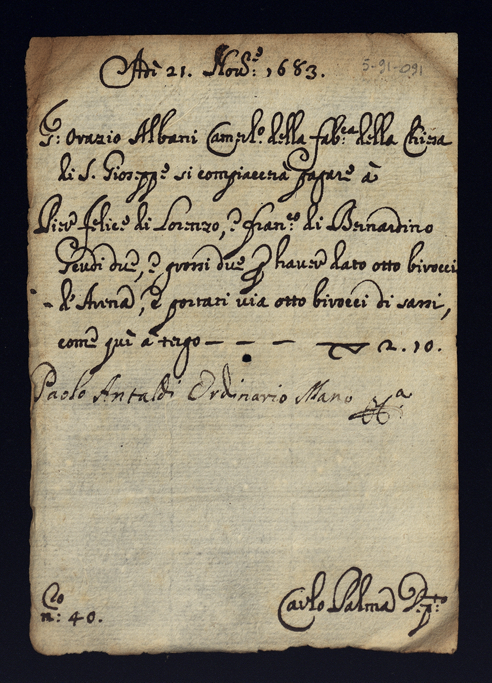 Adi 21. Nov.e 1683.
5-91-091
S: Orazio Albani Camerl.o della fab.ca della Chiesa
di S. Gioseppe si compiacerà pagare à
Pier felice di Lorenzo, e fran.co di Bernardino
scudi due, e grossi due p haver dato otto birocci
d'Arena, e portati via otto birocci di sassi,
come quì à tergo — — — 2.10.
Paolo Antaldi Ordinario Mano
Co
n: 40.
Carlo Palma